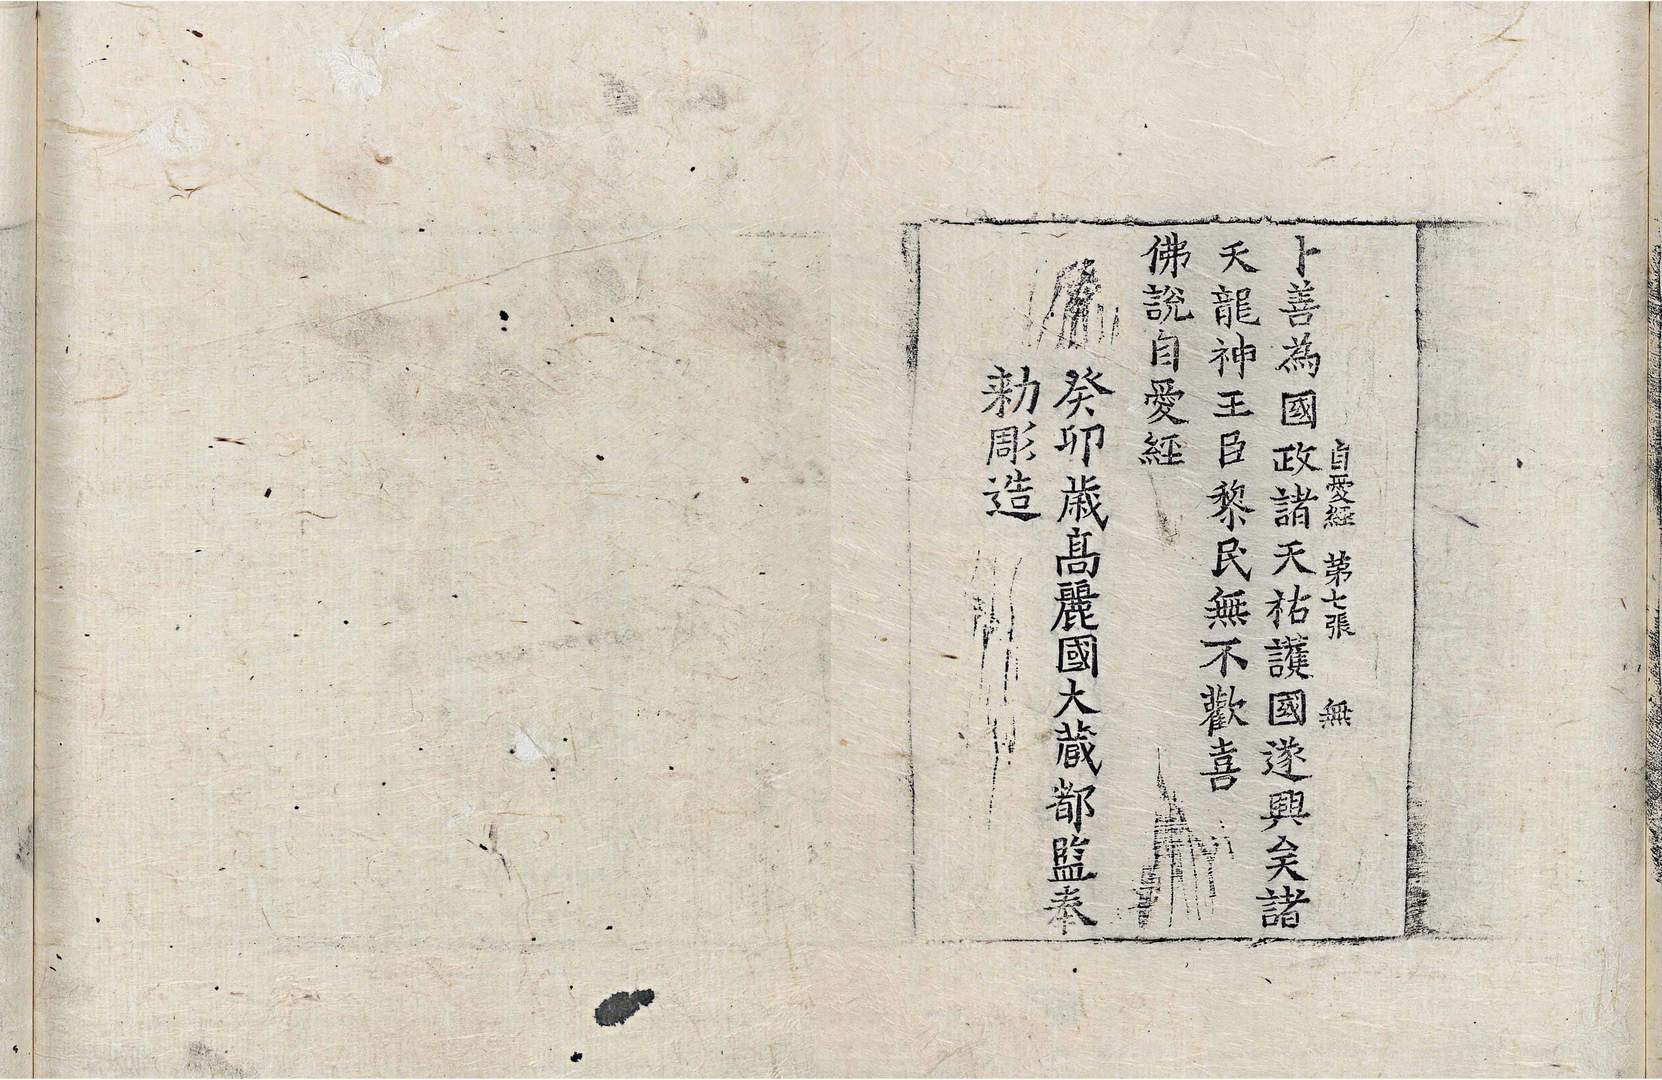 自愛經 第七張 無
卜善為國政諸天祐護國遂興矣諸
天龍神王臣黎民無不歡喜
佛說自愛經
癸卯歲高麗國大藏都監奉
勑彫造